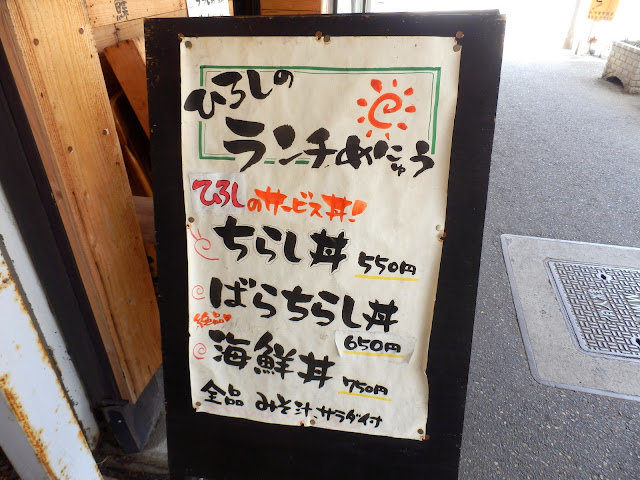 ひろしの
ランチめにゅう
ひろしのサービス丼!
ちらし丼 550円
ばらちらし丼
650円
絶品♥
海鮮丼 750円
全品 みそ汁、サラダ付